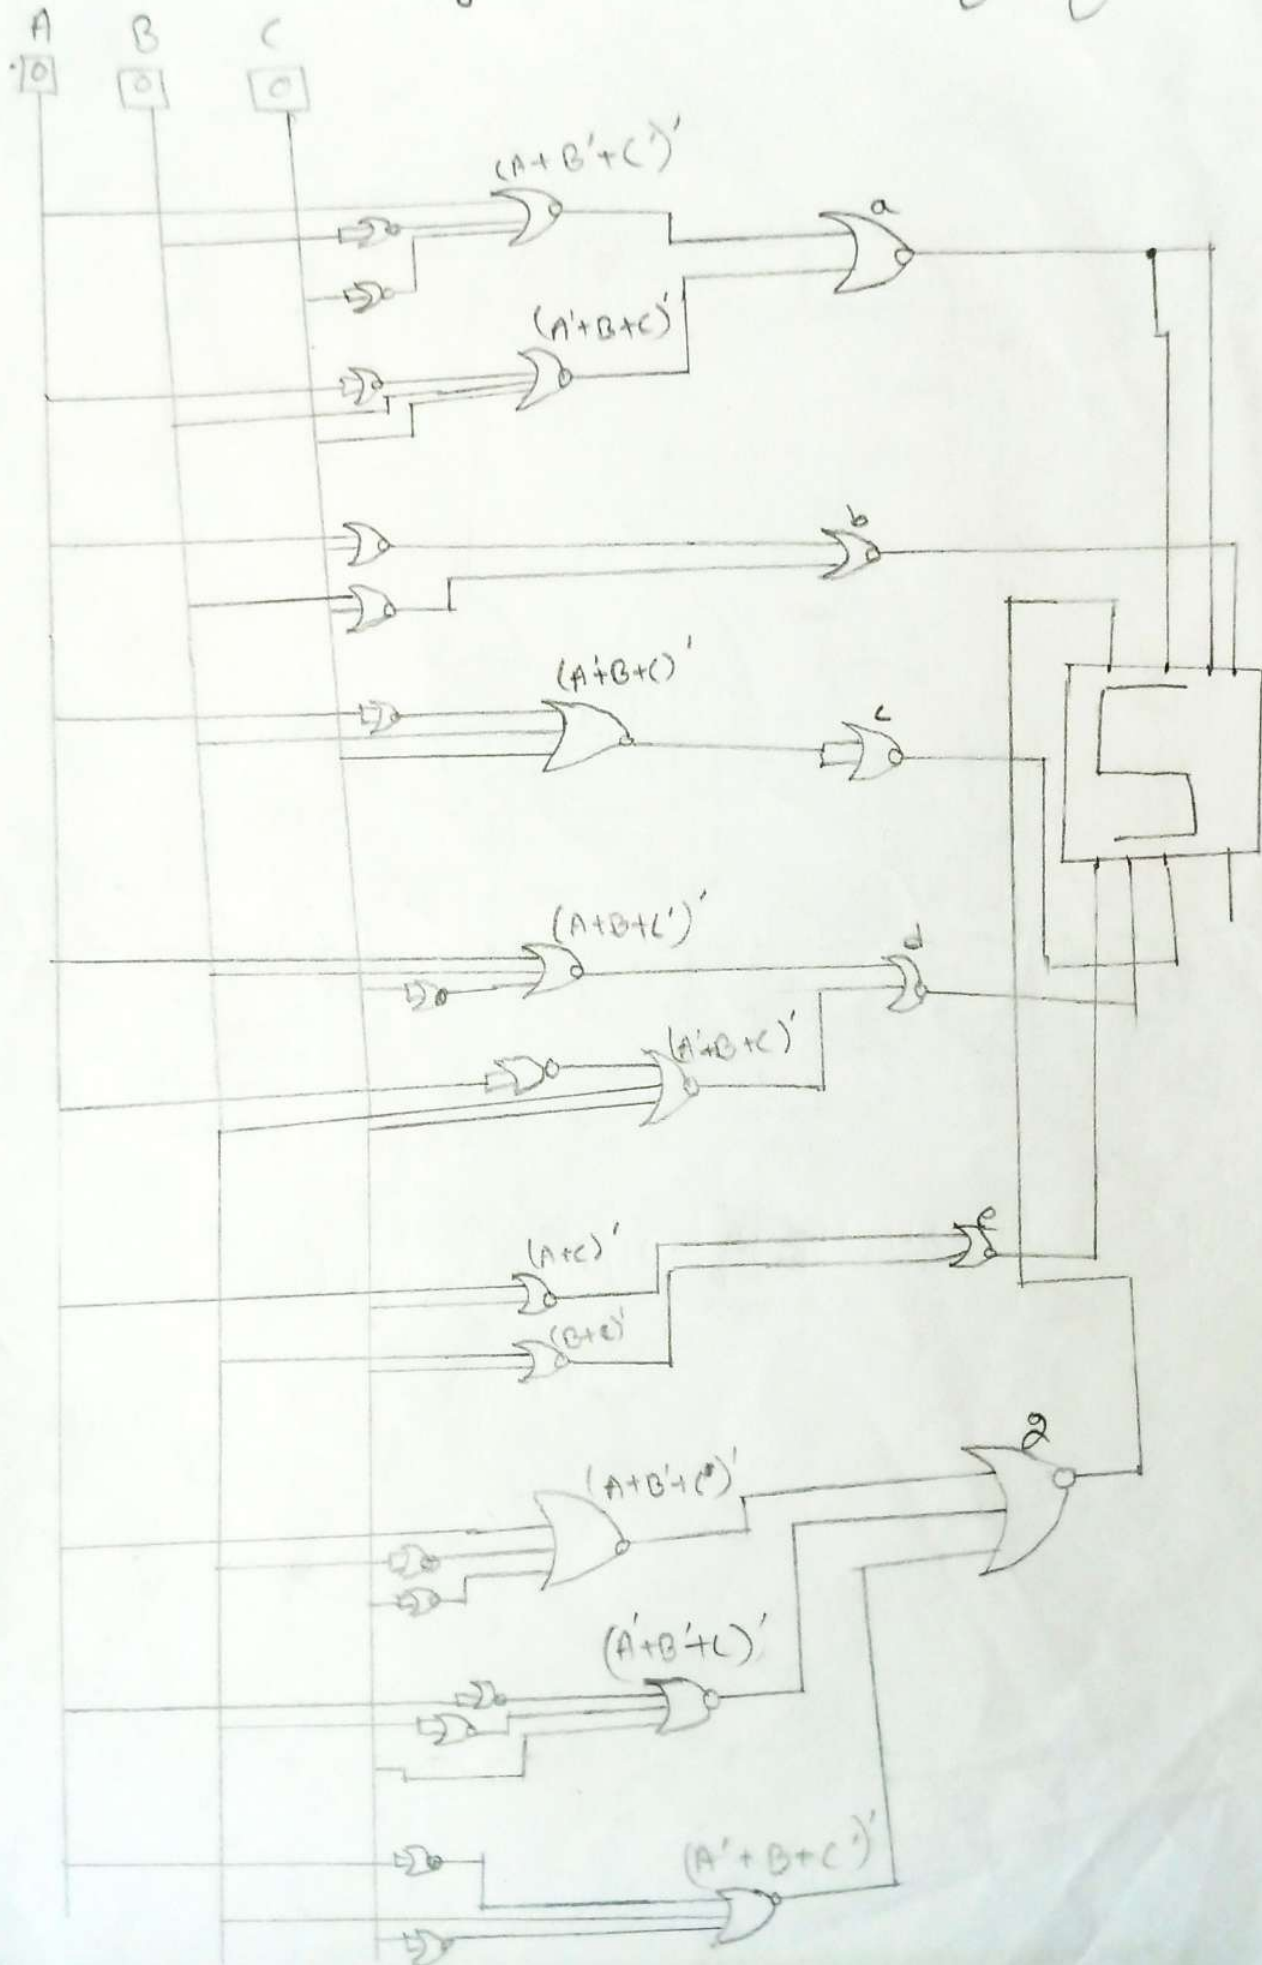 A B C
0 0 0
(A+B'+C')'
a
(A'+B+C)'
b
(A'+B+C)'
c
(A+B+C')'
d
(A'+B+C)'
e
(A+C)'
(B+C)'
g
(A+B'+C')'
(A'+B'+C)'
(A'+B+C')'